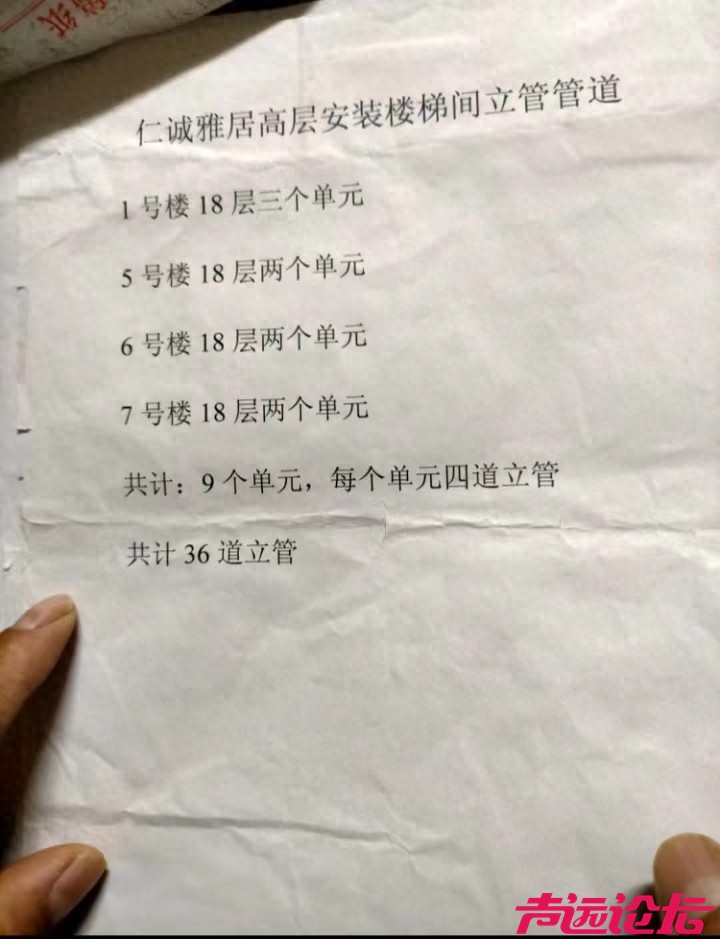 仁诚雅居高层安装楼梯间立管管道
1 号楼 18 层三个单元
5 号楼 18 层两个单元
6 号楼 18 层两个单元
7 号楼 18 层两个单元
共计：9 个单元，每个单元四道立管
共计 36 道立管
声远论坛